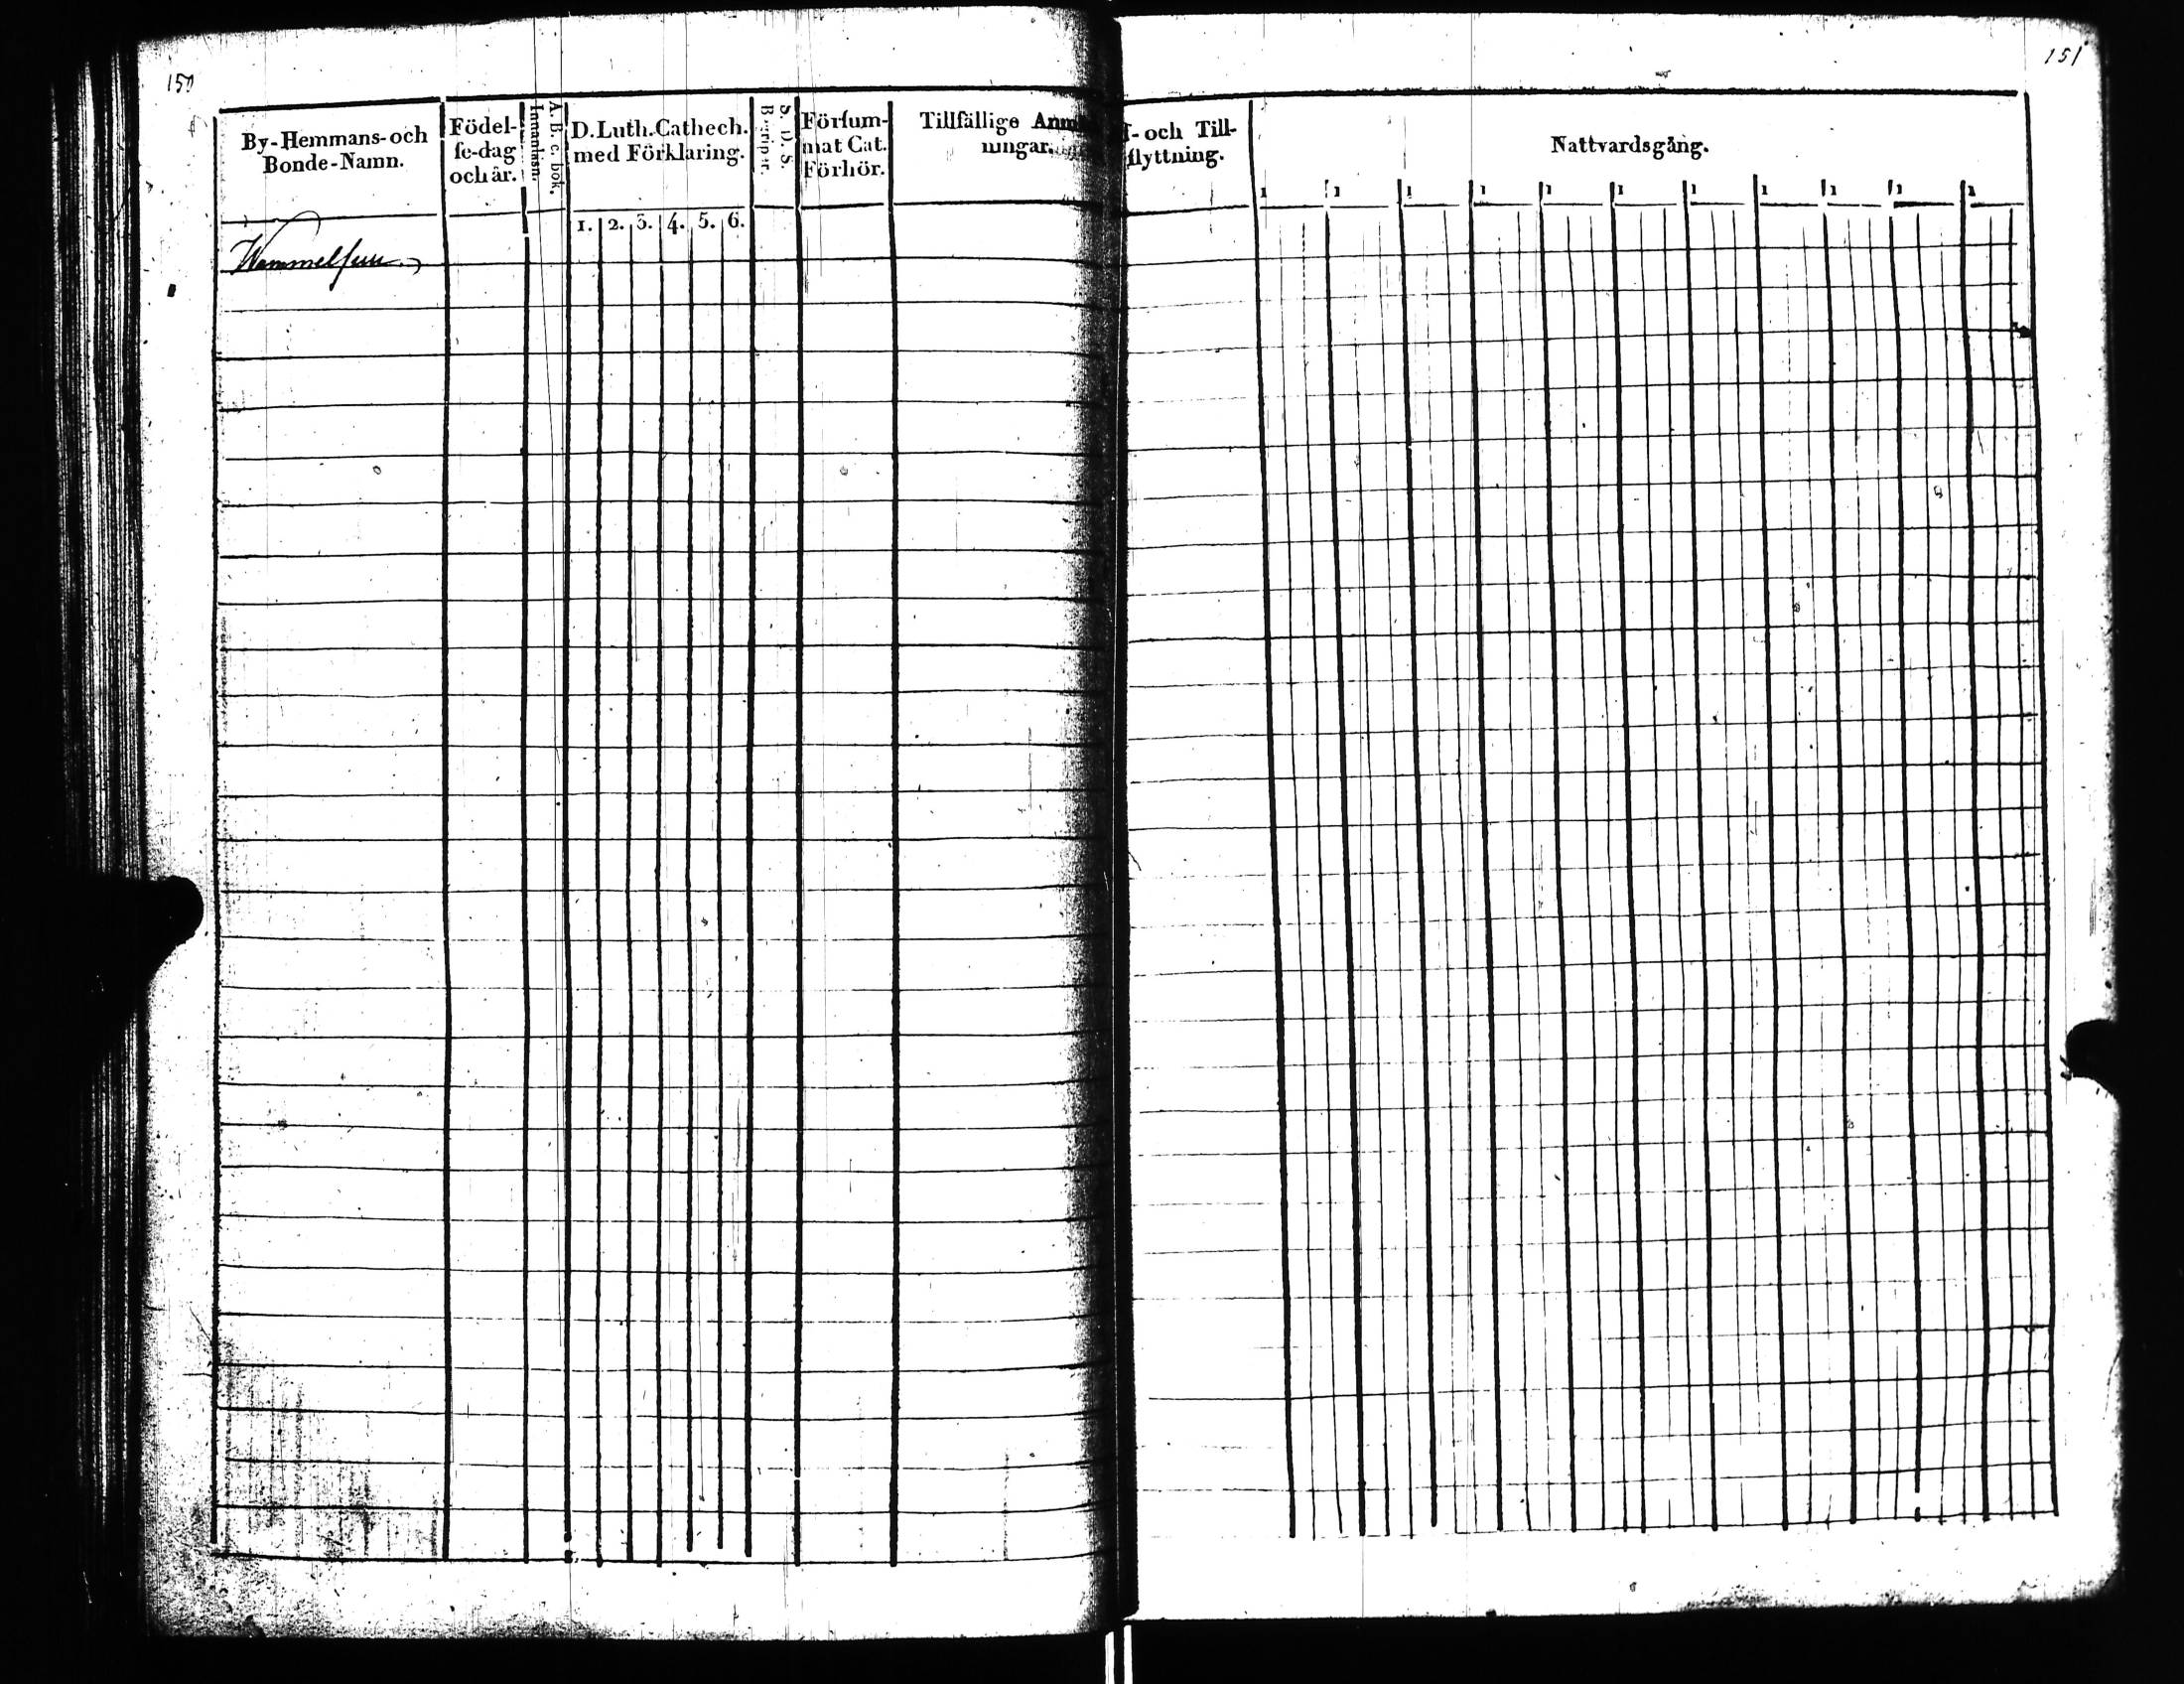 150
By-Hemmans-och
Bonde-Namn.
Födel-
se-dag
och år.
A. B. c. bok,
Innanläsn.
D. Luth. Cathech.
med Förklaring.
1. 2. 3. 4. 5. 6.
S. D. S.
Begriper.
Försum-
mat Cat.
Förhör.
Tillfällige Anm
ningar.
Wammelsuu
151
och Till-
flyttning.
Nattvardsgång.
1 1 1 1 1 1 1 1 1 1 1